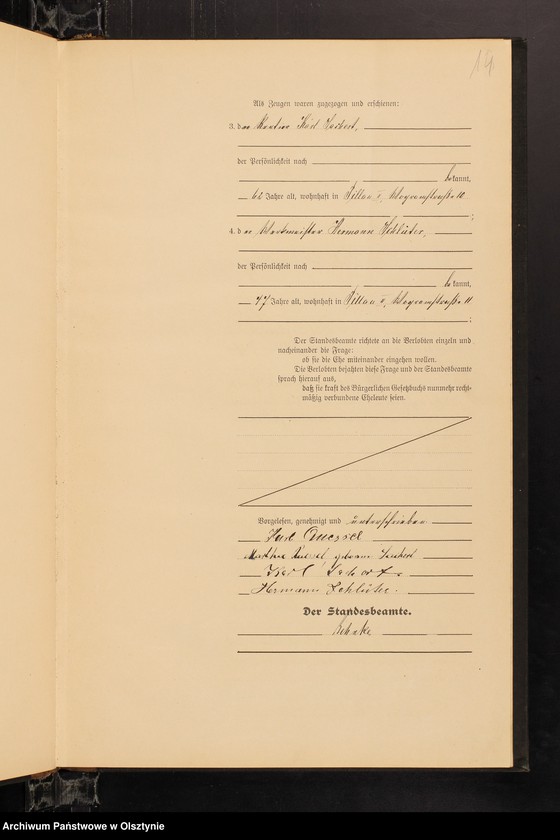 19.
Als Zeugen waren zugezogen und erschienen:
3. der Karl
der Persönlichkeit nach
bekannt,
62 Jahre alt, wohnhaft in Pillau I,
4. der Werkmeister Hermann Schlüter,
der Persönlichkeit nach
bekannt,
47 Jahre alt, wohnhaft in Pillau I,
Der Standesbeamte richtete an die Verlobten einzeln und
nacheinander die Frage:
ob sie die Ehe miteinander eingehen wollen.
Die Verlobten bejahten diese Frage und der Standesbeamte
sprach hierauf aus,
daß sie kraft des Bürgerlichen Gesetzbuchs nunmehr recht-
mäßig verbundene Eheleute seien.
Vorgelesen, genehmigt und unterschrieben
Karl Quessel
Martha Quessel geborene
Karl
Hermann Schlüter.
Der Standesbeamte.
Archiwum Państwowe w Olsztynie